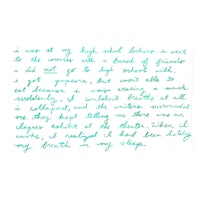 i was at my high school lockers. i went
to the movies with a bunch of friends
i did not go to high school with.
i got popcorn, but wasn't able to
eat because i was wearing a mask.
suddenly, i couldn't breathe at all
i collapsed, and the waiters surrounded
me. they kept telling me there was an
exhibit at the theater. when i
awoke, i realized i had been holding
my breath in my sleep.